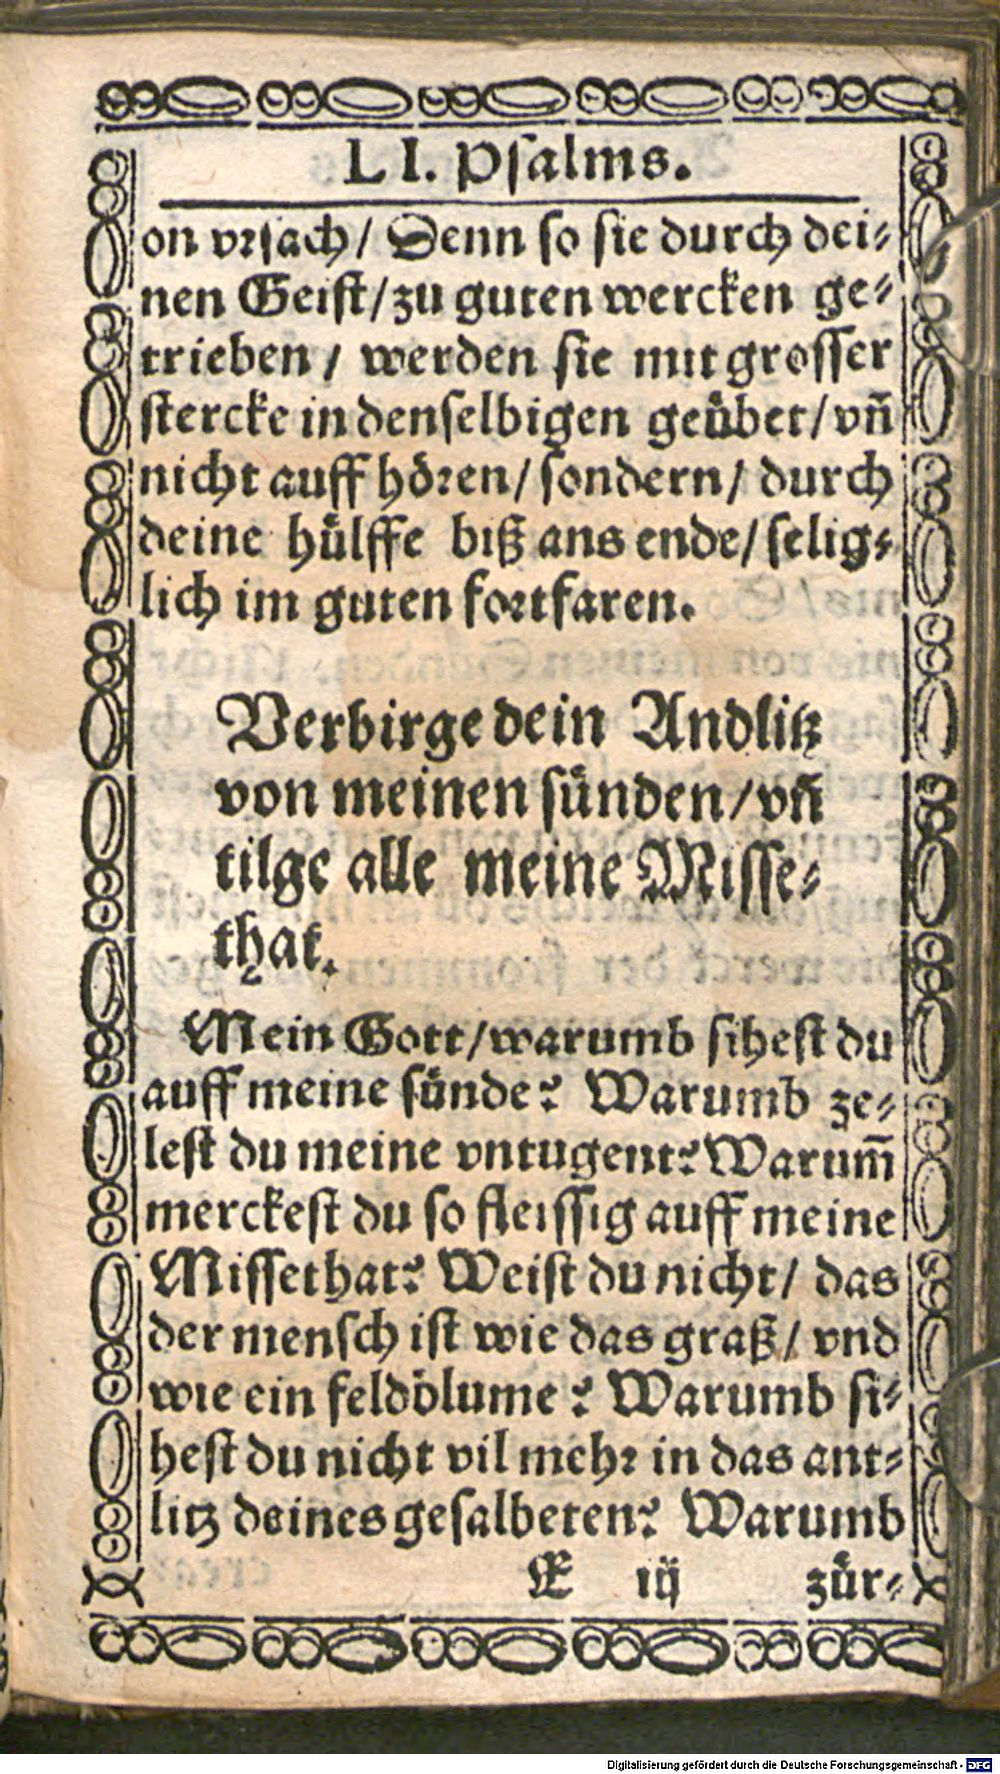 LI. Psalms.
on vrsach/ Denn so sie durch dei⸗
nen Geist/zu guten wercken ge⸗
trieben / werden sie mit grosser
stercke in denselbigen geübet/vñ
nicht auff hören/ sondern/ durch
deine hülffe biß ans ende/ selig⸗
lich im guten fortfaren.
Verbirge dein Andlitz
von meinen sünden/vñ
tilge alle meine Misse⸗
that.
Mein Gott/warumb sihest du
auff meine sünde? Warumb ze⸗
lest du meine vntugent? Warum̄
merckest du so fleissig auff meine
Missethat? Weist du nicht/ das
der mensch ist wie das graß/ vnd
wie ein feldblume? Warumb si⸗
hest du nicht vil mehr in das ant⸗
litz deines gesalbeten? Warumb
E iij zür⸗
Digitalisierung gefördert durch die Deutsche Forschungsgemeinschaft - DFG